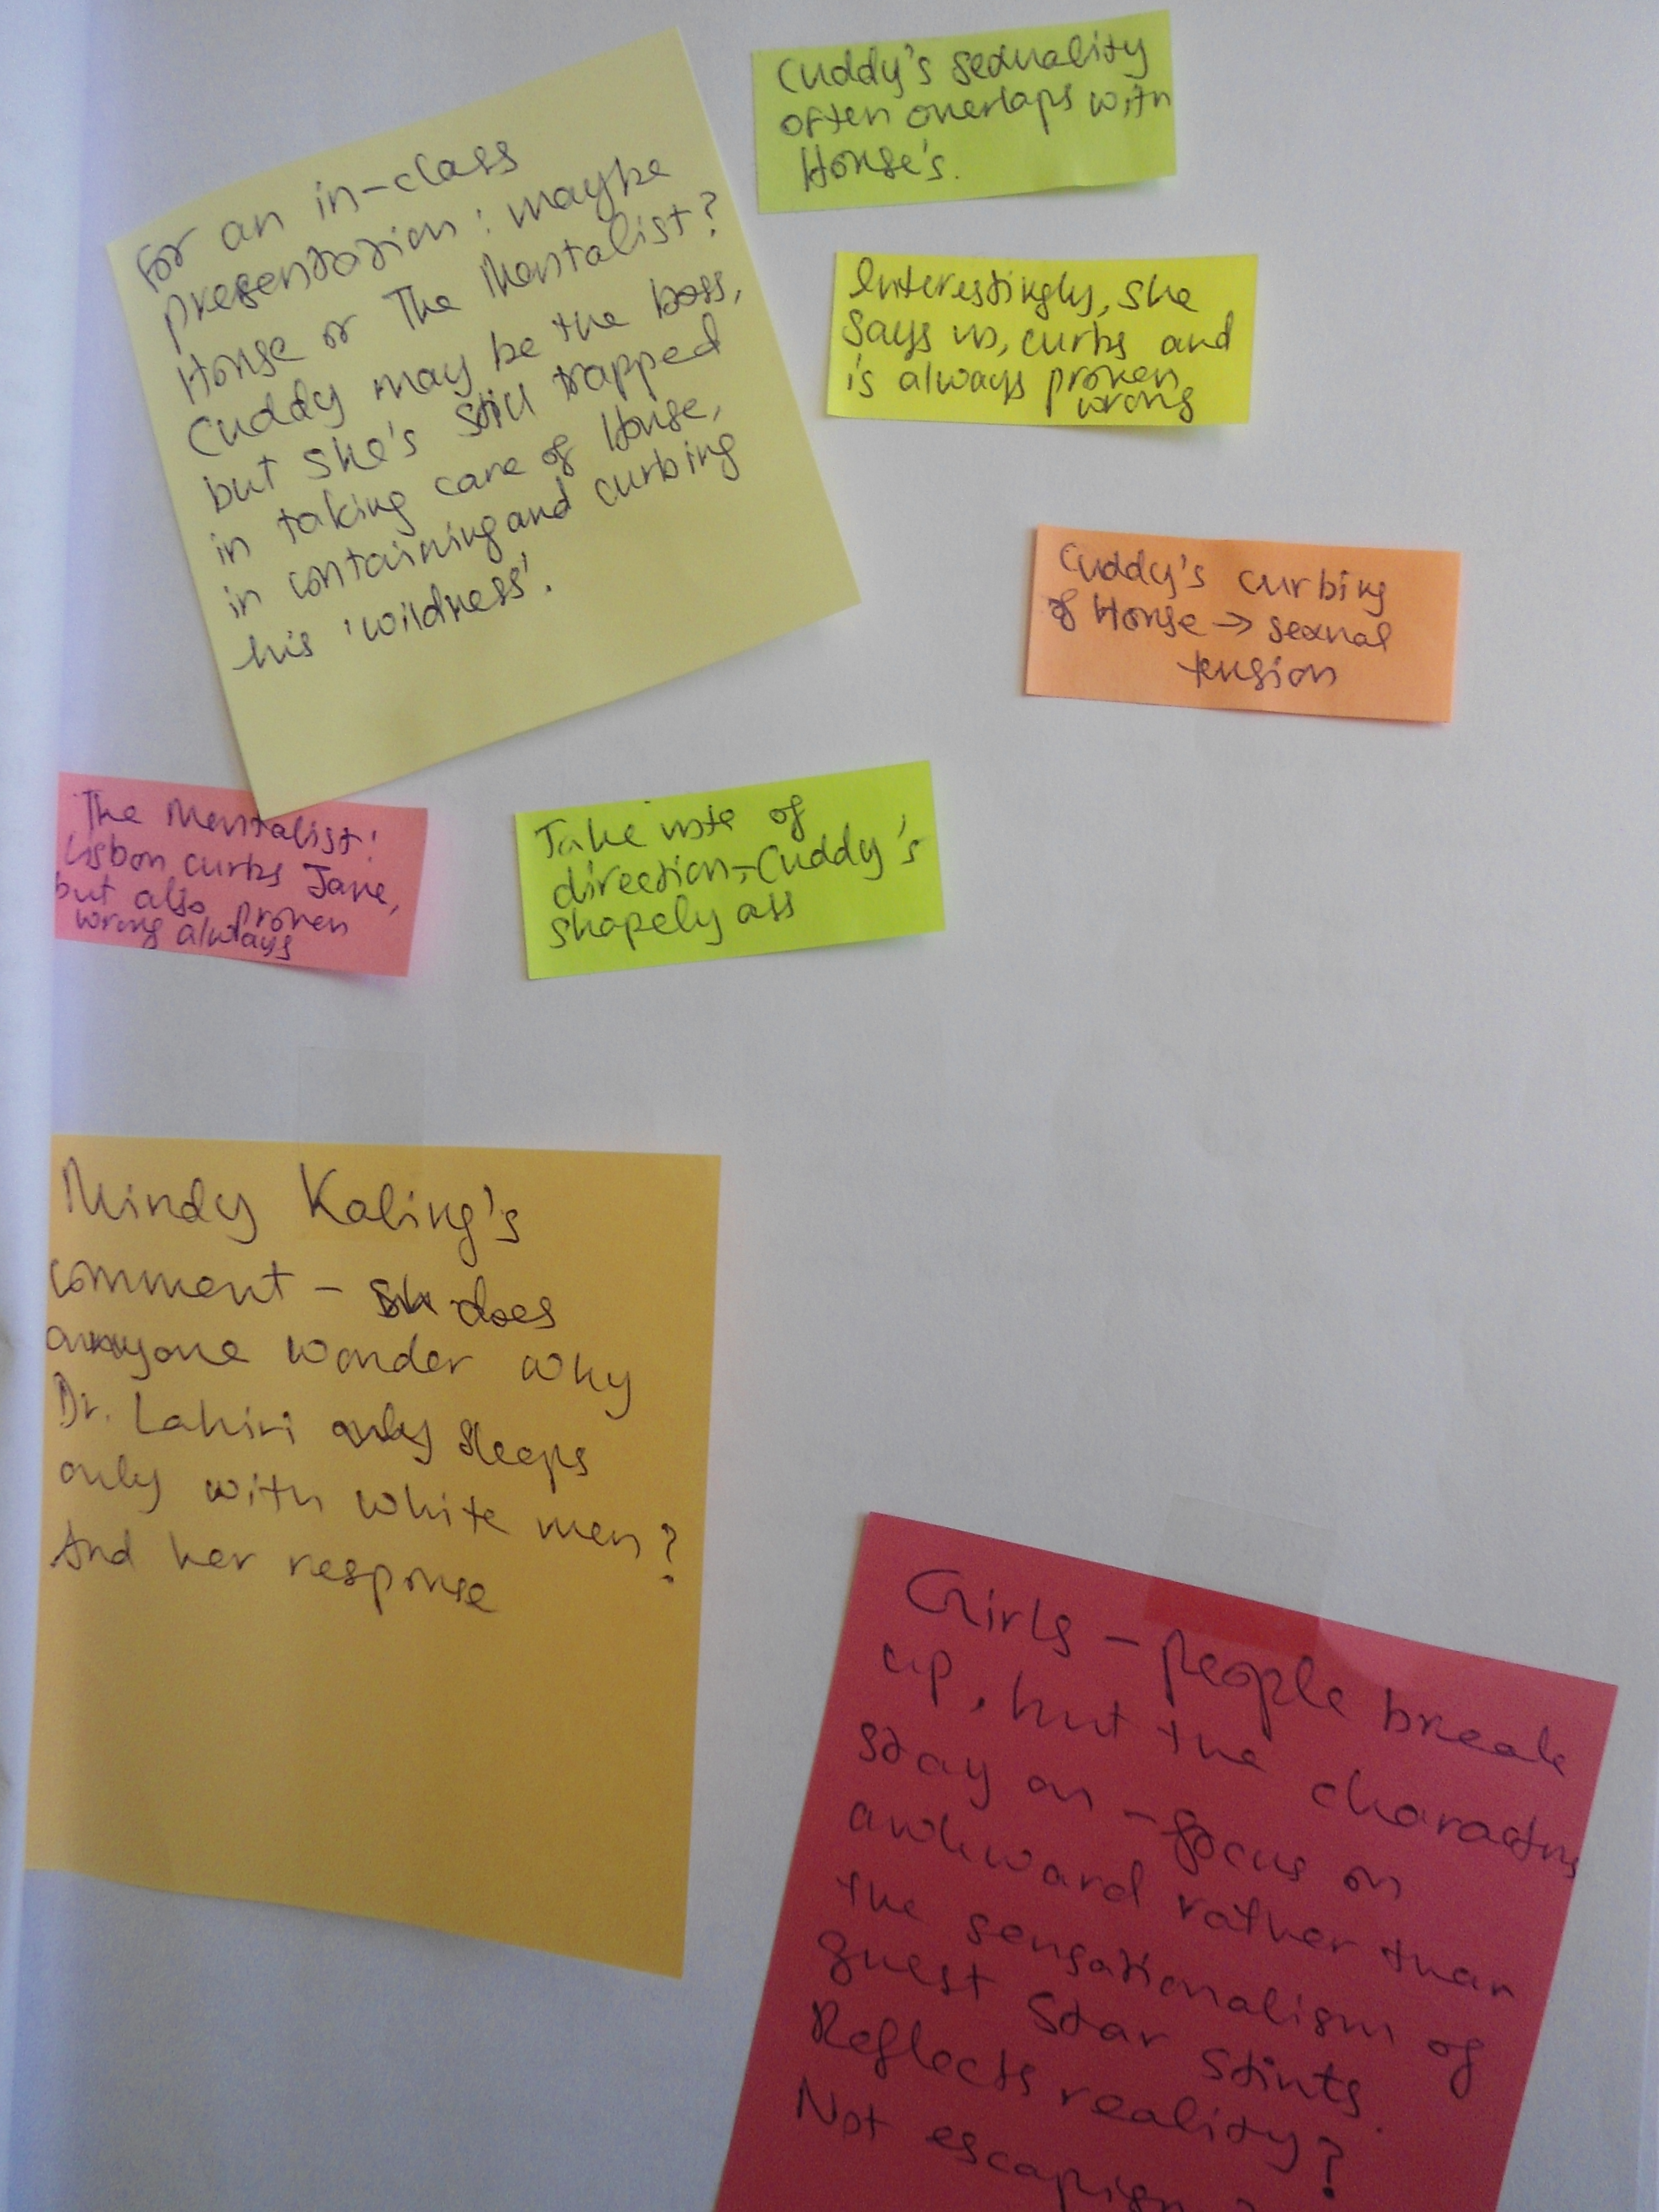 For an in-class
presentation: maybe
House or The Mentalist?
Cuddy may be the boss,
but she's still trapped
in taking care of House,
in containing and curbing
his 'wildness'.
Cuddy's sexuality
often overlaps with
House's.
Interestingly, she
says no, curbs and
is always proven
wrong
Cuddy's curbing
of House → sexual
tension
The Mentalist:
Lisbon curbs Jane,
but also proven
wrong always
Take note of
direction – Cuddy's
shapely ass
Mindy Kaling's
comment – does
anyone wonder why
Dr. Lahiri only sleeps
only with white men?
And her response
Girls – people break
up, but the characters
stay on – focus on
awkward rather than
the sensationalism of
guest star stints.
Reflects reality?
Not